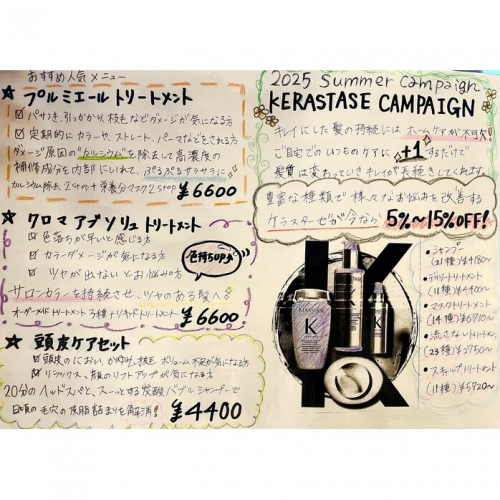 おすすめ人気メニュー
★ プルミエール トリートメント
☑ パサつき、引っかかり、枝毛などダメージが気になる方
☑ 定期的に カラーや、ストレート、パーマなどをされる方
ダメージ原因の"カルシウム"を除去して高濃度の
補修成分を内部にいれて、ぷるぷるサラサラに
カルシウム除去 2step + 栄養分マスク 2step ¥6600
★ クロマ アブソリュ トリートメント
☑ 色落ちが早いと感じる方
☑ カラーダメージが気になる方
☑ ツヤが出ないとお悩みの方
色持ちUP♪
サロンカラーを持続させ、ツヤのある髪へ
オーダーメイドトリートメント3種+リペアトリートメント ¥6600
★ 頭皮ケアセット
☑ 頭皮のにおい、かゆみ、抜毛、ボリューム不足が気になる方
☑ リラックス、顔のリフトアップが気になる方
20分のヘッドスパと、スーッとする炭酸バブルシャンプーで
日頃の毛穴の皮脂詰まりを解消! ¥4400
2025 Summer Campaign
KERASTASE CAMPAIGN
キレイにした髪の持続には ホームケアが不可欠!
ご自宅でのいつものケアに +1 するだけで
髪質は変わっていきキレイが持続してくれます。
豊富な種類で様々なお悩みを改善する
ケラスターゼが今なら 5%~15%OFF!
K
KERASTASE
K
・シャンプー
(21種) ¥4180~
・デイリートリートメント
(11種) ¥4400~
・マスクトリートメント
(14種) ¥6710~
・流さないトリートメント
(23種) ¥2750~
・スキャルプトリートメント
(11種) ¥5720~